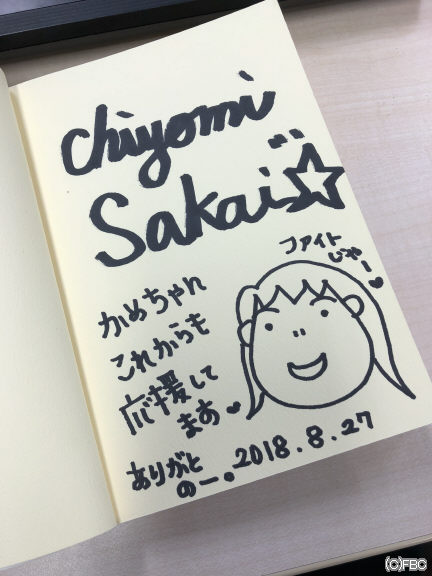 Chiyomi
Sakai☆
ファイト
じゃー♥
かめちゃん
これからも
応援して
ます♥
ありがと
のー。
2018.8.27
(C)FBC